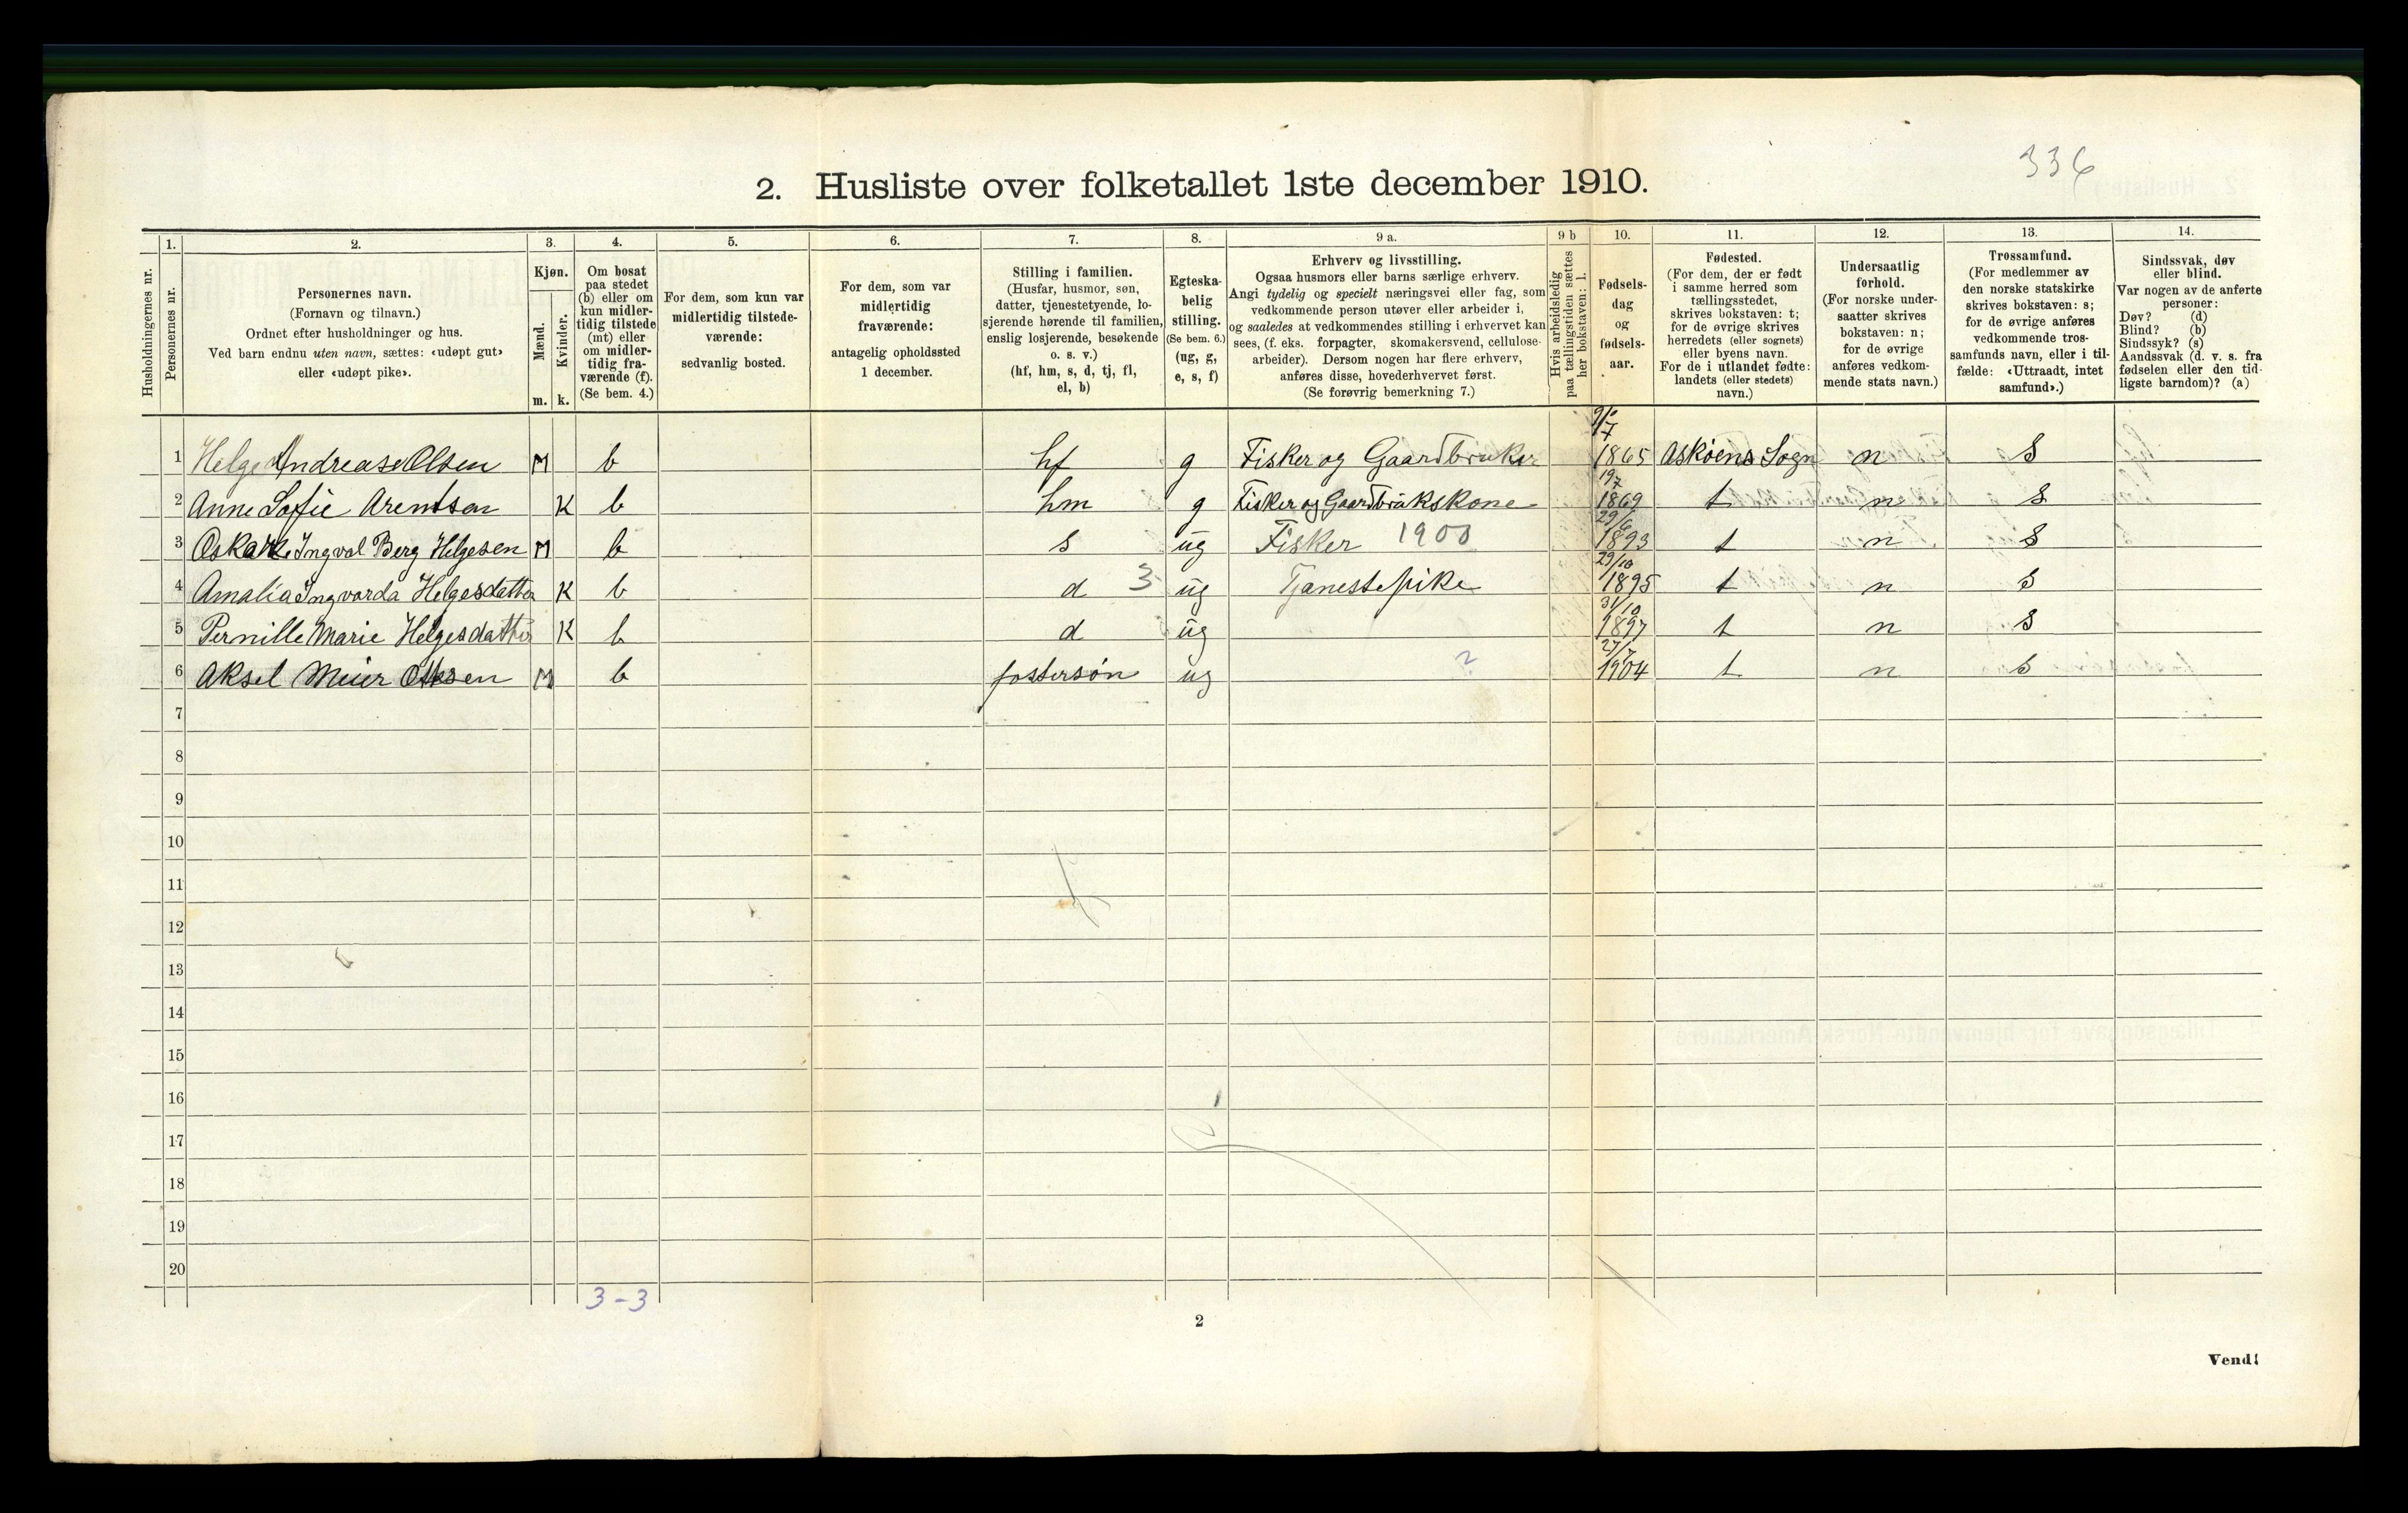 336
2. Husliste over folketallet 1ste december 1910.
Husholdningernes nr.
1.
Personernes nr.
2.
Personernes navn.
(Fornavn og tilnavn.)
Ordnet efter husholdninger og hus.
Ved barn endnu uten navn, sættes: «udøpt gut»
eller «udøpt pike».
3.
Kjøn.
Mænd.
Kvinder.
m. k.
4.
Om bosat
paa stedet
(b) eller om
kun midler-
tidig tilstede
(mt) eller
om midler-
tidig fra-
værende (f).
(Se bem. 4.)
5.
For dem, som kun var
midlertidig tilstede-
værende:
sedvanlig bosted.
6.
For dem, som var
midlertidig
fraværende:
antagelig opholdssted
1 december.
7.
Stilling i familien.
(Husfar, husmor, søn,
datter, tjenestetyende, lo-
sjerende hørende til familien,
enslig losjerende, besøkende
o. s. v.)
(hf, hm, s, d, tj, fl,
el, b)
8.
Egteska-
belig
stilling.
(Se bem. 6.)
(ug, g,
e, s, f)
9 a.
Erhverv og livsstilling.
Ogsaa husmors eller barns særlige erhverv.
Angi tydelig og specielt næringsvei eller fag, som
vedkommende person utøver eller arbeider i,
og saaledes at vedkommendes stilling i erhvervet kan
sees, (f. eks. forpagter, skomakersvend, cellulose-
arbeider). Dersom nogen har flere erhverv,
anføres disse, hovederhvervet først.
(Se forøvrig bemerkning 7.)
9 b
Hvis arbeidsledig
paa tællingstiden sættes
her bokstaven: l.
10.
Fødsels-
dag
og
fødsels-
aar.
11.
Fødested.
(For dem, der er født
i samme herred som
tællingsstedet,
skrives bokstaven: t;
for de øvrige skrives
herredets (eller sognets)
eller byens navn.
For de i utlandet fødte:
landets (eller stedets)
navn.)
12.
Undersaatlig
forhold.
(For norske under-
saatter skrives
bokstaven: n;
for de øvrige
anføres vedkom-
mende stats navn.)
13.
Trossamfund.
(For medlemmer av
den norske statskirke
skrives bokstaven: s;
for de øvrige anføres
vedkommende tros-
samfunds navn, eller i til-
fælde: «Uttraadt, intet
samfund».)
14.
Sindssvak, døv
eller blind.
Var nogen av de anførte
personer:
Døv? (d)
Blind? (b)
Sindssyk? (s)
Aandssvak (d. v. s. fra
fødselen eller den tid-
ligste barndom)? (a)
1 Helge Andreas Olsen M b hf g Fisker og Gaardbruker 9/7 1865 Askøens Sogn n S
2 Anne Sofie Arentsen K b hm g Fisker og Gaardbrukskone 19/7 1869 t n S
3 Ingval Berg Helgesen M b s ug Fisker 1900 29/6 1893 t n S
4 Amalia Ingvarda Helgesdatter K b d 3 ug Tjanestepike 29/10 1895 t n S
5 Pernille Marie Helgesdatter K b d ug 31/10 1897 t n S
6 Aksel Meier Ottesen M b fostersøn ug ? 27/7 1904 t n S
7
8
9
10
11
12
13
14
15
16
17
18
19
20
3-3
2
Vend!